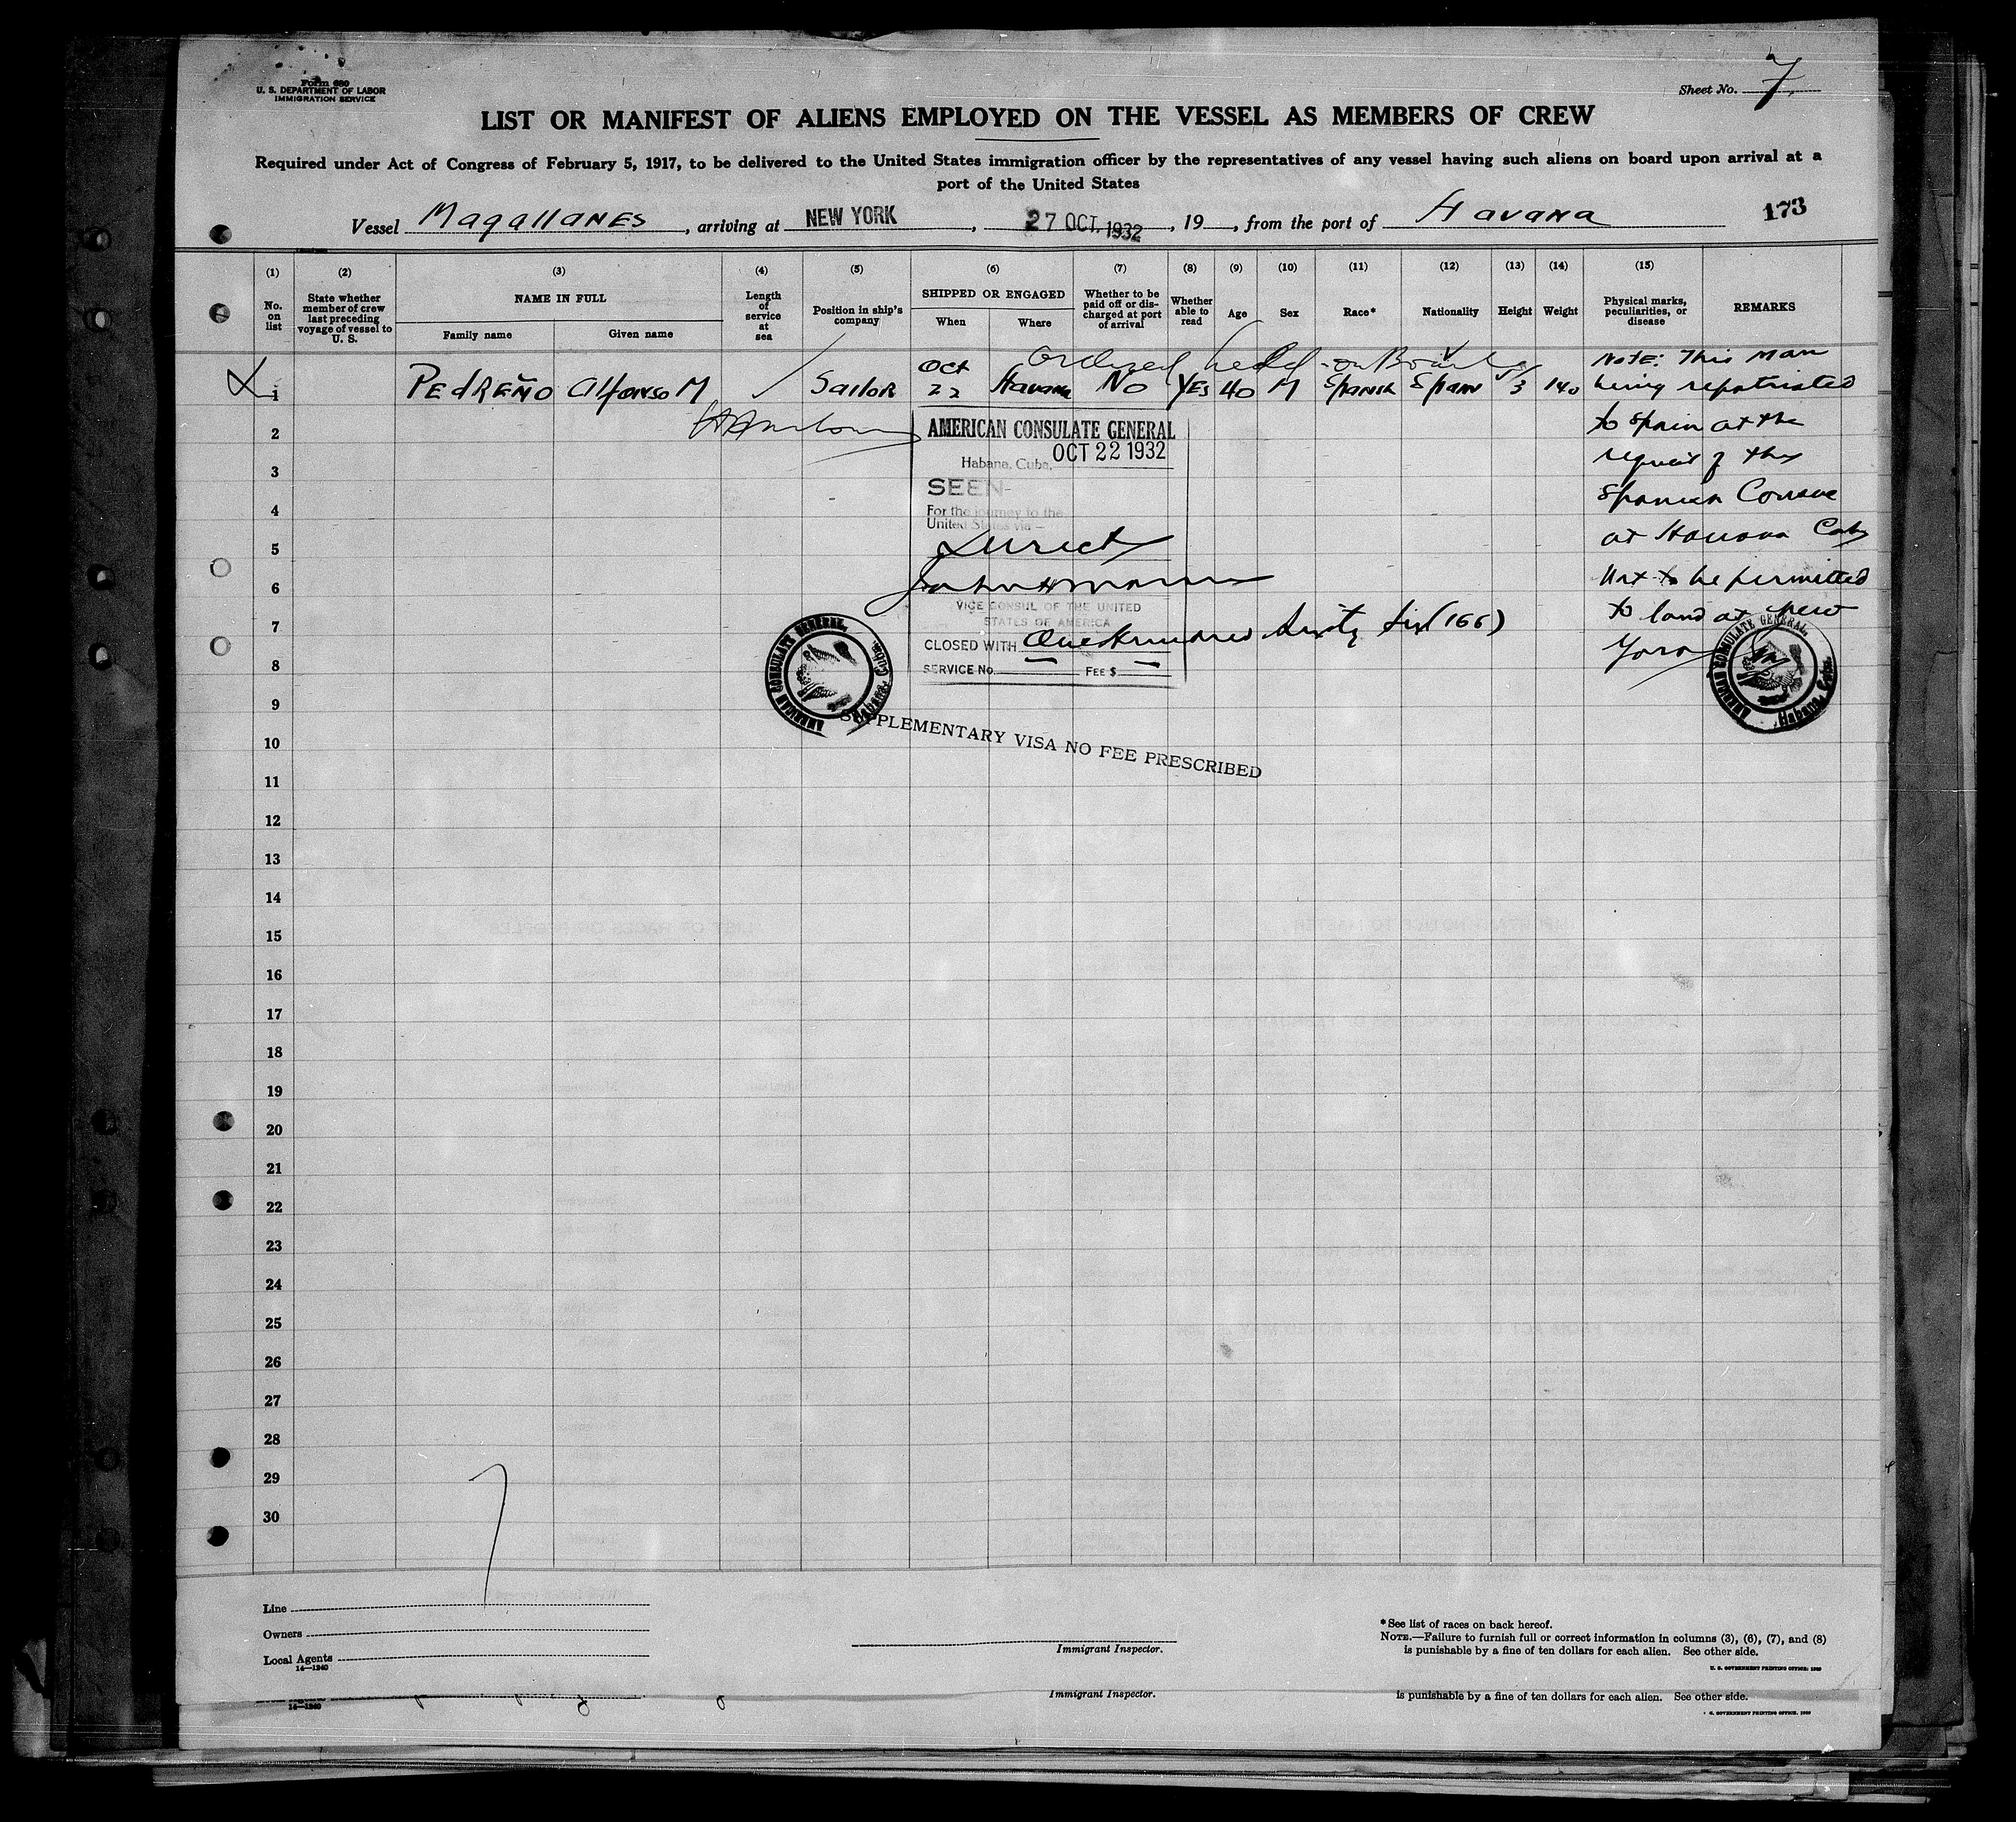 Form 680
U. S. DEPARTMENT OF LABOR
IMMIGRATION SERVICE
Sheet No. 7
LIST OR MANIFEST OF ALIENS EMPLOYED ON THE VESSEL AS MEMBERS OF CREW
Required under Act of Congress of February 5, 1917, to be delivered to the United States immigration officer by the representatives of any vessel having such aliens on board upon arrival at a
port of the United States
Vessel MagallaNES, arriving at NEW YORK, 27 OCT. 1932, 19, from the port of Havana
173
(1) (2) (3) (4) (5) (6) (7) (8) (9) (10) (11) (12) (13) (14) (15)
No. on list
State whether member of crew last preceding voyage of vessel to U. S.
NAME IN FULL
Family name Given name
Length of service at sea
Position in ship's company
SHIPPED OR ENGAGED
When Where
Whether to be paid off or discharged at port of arrival
Whether able to read
Age
Sex
Race*
Nationality
Height
Weight
Physical marks, peculiarities, or disease
REMARKS
Ordered held on Board
1 PEdREÑO AlfonSo M Sailor Oct 22 Havana No YES 40 M Spanish Spain 5/3 140
Note: This man
being repatriated
to Spain at the
request of the
Spanish
at Havana Cuba
Not to be permitted
to land at New
York
AMERICAN CONSULATE GENERAL
OCT 22 1932
Habana, Cuba,
SEEN
For the journey to the
United States via —
Direct
VICE CONSUL OF THE UNITED
STATES OF AMERICA
CLOSED WITH One Hundred Sixty Six (166)
SERVICE No. — FEE $ —
AMERICAN CONSULATE GENERAL, Habana, Cuba.
AMERICAN CONSULATE GENERAL, Habana, Cuba.
SUPPLEMENTARY VISA NO FEE PRESCRIBED
2
3
4
5
6
7
8
9
10
11
12
13
14
15
16
17
18
19
20
21
22
23
24
25
26
27
28
29
30
Line
Owners
Local Agents
14—1240
Immigrant Inspector.
*See list of races on back hereof.
NOTE.—Failure to furnish full or correct information in columns (3), (6), (7), and (8)
is punishable by a fine of ten dollars for each alien. See other side.
U. S. GOVERNMENT PRINTING OFFICE: 1929
14—1240
Immigrant Inspector.
is punishable by a fine of ten dollars for each alien. See other side.
GOVERNMENT PRINTING OFFICE: 1929